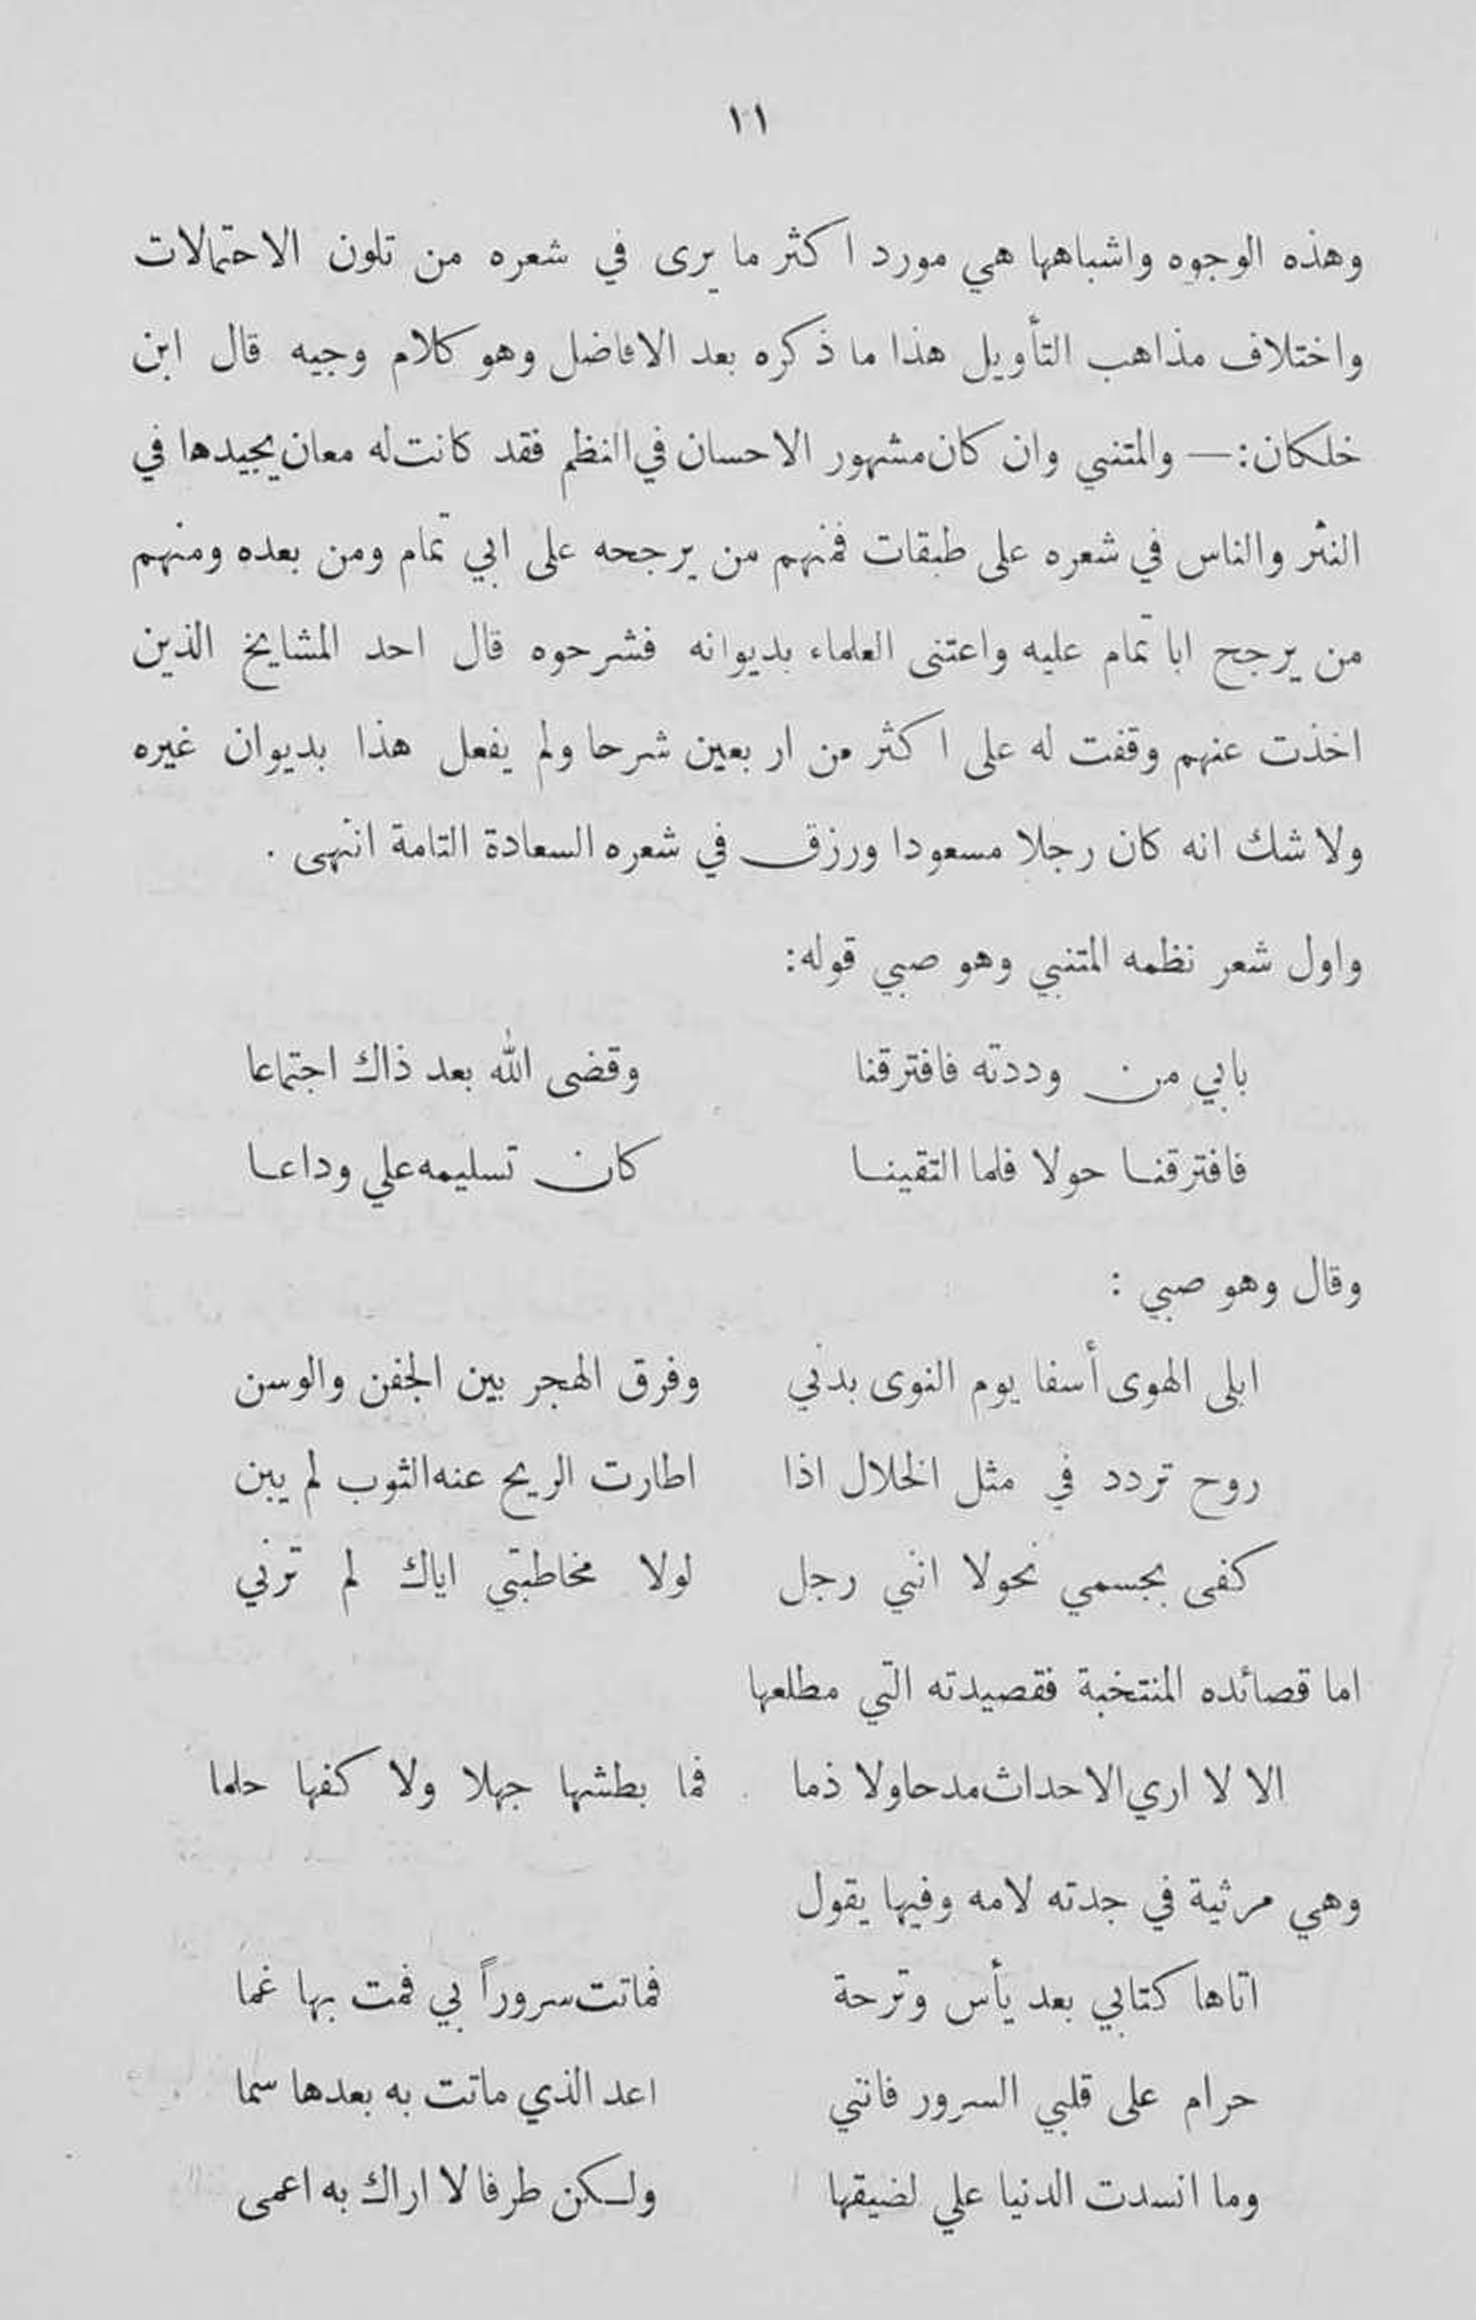 ١١
وهذه الوجوه واشباهها هي مورد اكثر ما يرى في شعره من تلون الاحتمالات
واختلاف مذاهب التأويل هذا ما ذكره بعد الافاضل وهو كلام وجيه قال ابن
خلكان: — والمتنبي وان كان مشهور الاحسان في النظم فقد كانت له معان يجيدها في
النثر والناس في شعره على طبقات فمنهم من يرجحه على ابي تمام ومن بعده ومنهم
من يرجح ابا تمام عليه واعتنى العلماء بديوانه فشرحوه قال احد المشايخ الذين
اخذت عنهم وقفت له على اكثر من اربعين شرحا ولم يفعل هذا بديوان غيره
ولا شك انه كان رجلا مسعودا ورزق في شعره السعادة التامة انتهى .
واول شعر نظمه المتنبي وهو صبي قوله:
بابي من وددته فافترقنا وقضى الله بعد ذاك اجتماعا
فافترقنا حولا فلما التقينا كان تسليمه علي وداعا
وقال وهو صبي :
ابلى الهوى أسفا يوم النوى بدني وفرق الهجر بين الجفن والوسن
روح تردد في مثل الخلال اذا اطارت الريح عنه الثوب لم يبن
كفى بجسمي نحولا انني رجل لولا مخاطبتي اياك لم ترني
اما قصائده المنتخبة فقصيدته التي مطلعها
الا لا اري الاحداث مدحا ولا ذما فما بطشها جهلا ولا كفها حلما
وهي مرثية في جدته لامه وفيها يقول
اتاها كتابي بعد يأس وترحة فماتت سروراً بي فمت بها غما
حرام على قلبي السرور فانني اعد الذي ماتت به بعدها سما
وما انسدت الدنيا علي لضيقها ولكن طرفا لا اراك به اعمى